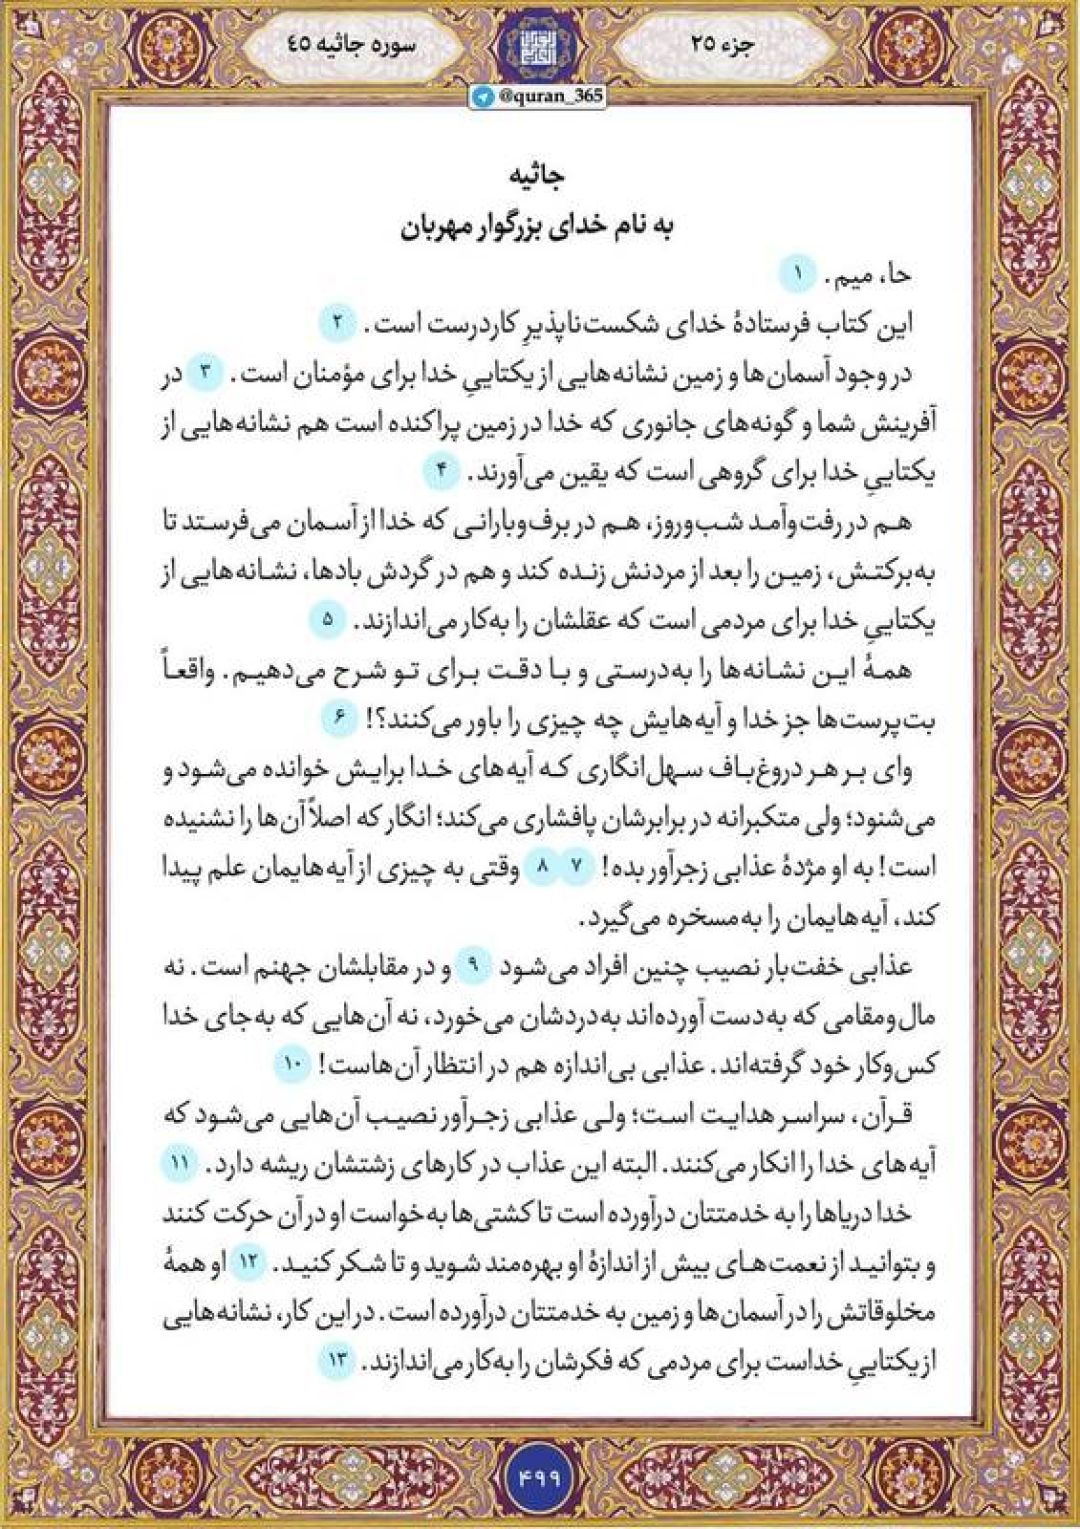 جزء ۲۵
سوره جاثیه ٤٥
@quran_365
جاثیه
به نام خدای بزرگوار مهربان
حا، میم. ۱
این کتاب فرستادهٔ خدای شکست‌ناپذیرِ کاردرست است. ۲
در وجود آسمان‌ها و زمین نشانه‌هایی از یکتاییِ خدا برای مؤمنان است. ۳ در
آفرینش شما و گونه‌های جانوری که خدا در زمین پراکنده است هم نشانه‌هایی از
یکتاییِ خدا برای گروهی است که یقین می‌آورند. ۴
هـم در رفت‌وآمـد شب‌وروز، هـم در برف‌وبارانـی که خدا از آسـمان می‌فرسـتد تا
به‌برکتـش، زمیـن را بعد از مردنش زنـده کند و هم در گردش بادها، نشـانه‌هایی از
یکتاییِ خدا برای مردمی است که عقلشان را به‌کار می‌اندازند. ۵
همـهٔ ایـن نشـانه‌ها را به‌درسـتی و بـا دقـت بـرای تـو شـرح می‌دهیـم. واقعـاً
بت‌پرست‌ها جز خدا و آیه‌هایش چه چیزی را باور می‌کنند؟! ۶
وای بـر هـر دروغ‌بـاف سـهل‌انگاری کـه آیه‌های خـدا برایـش خوانده می‌شـود و
می‌شنود؛ ولی متکبرانه در برابرشان پافشاری می‌کند؛ انگار که اصلاً آن‌ها را نشنیده
است! به او مژدهٔ عذابی زجرآور بده! ۷ ۸ وقتی به چیزی از آیه‌هایمان علم پیدا
کند، آیه‌هایمان را به‌مسخره می‌گیرد.
عذابی خفت‌بار نصیب چنین افراد می‌شـود ۹ و در مقابلشان جهنم است. نه
مال‌ومقامی که به‌دست آورده‌اند به‌دردشان می‌خورد، نه آن‌هایی که به‌جای خدا
کس‌وکار خود گرفته‌اند. عذابی بی‌اندازه هم در انتظار آن‌هاست! ۱۰
قـرآن، سراسـر هدایـت اسـت؛ ولـی عذابـی زجـرآور نصیـب آن‌هایـی می‌شـود که
آیه‌های خدا را انکار می‌کنند. البته این عذاب در کارهای زشتشان ریشه دارد. ۱۱
خدا دریاها را به خدمتتان درآورده است تا کشتی‌ها به‌خواست او در آن حرکت کنند
و بتوانیـد از نعمت‌هـای بیش از اندازهٔ او بهره‌مند شـوید و تا شـکر کنیـد. ۱۲ او همهٔ
مخلوقاتش را در آسمان‌ها و زمین به خدمتتان درآورده است. در این کار، نشانه‌هایی
از یکتاییِ خداست برای مردمی که فکرشان را به‌کار می‌اندازند. ۱۳
۴۹۹